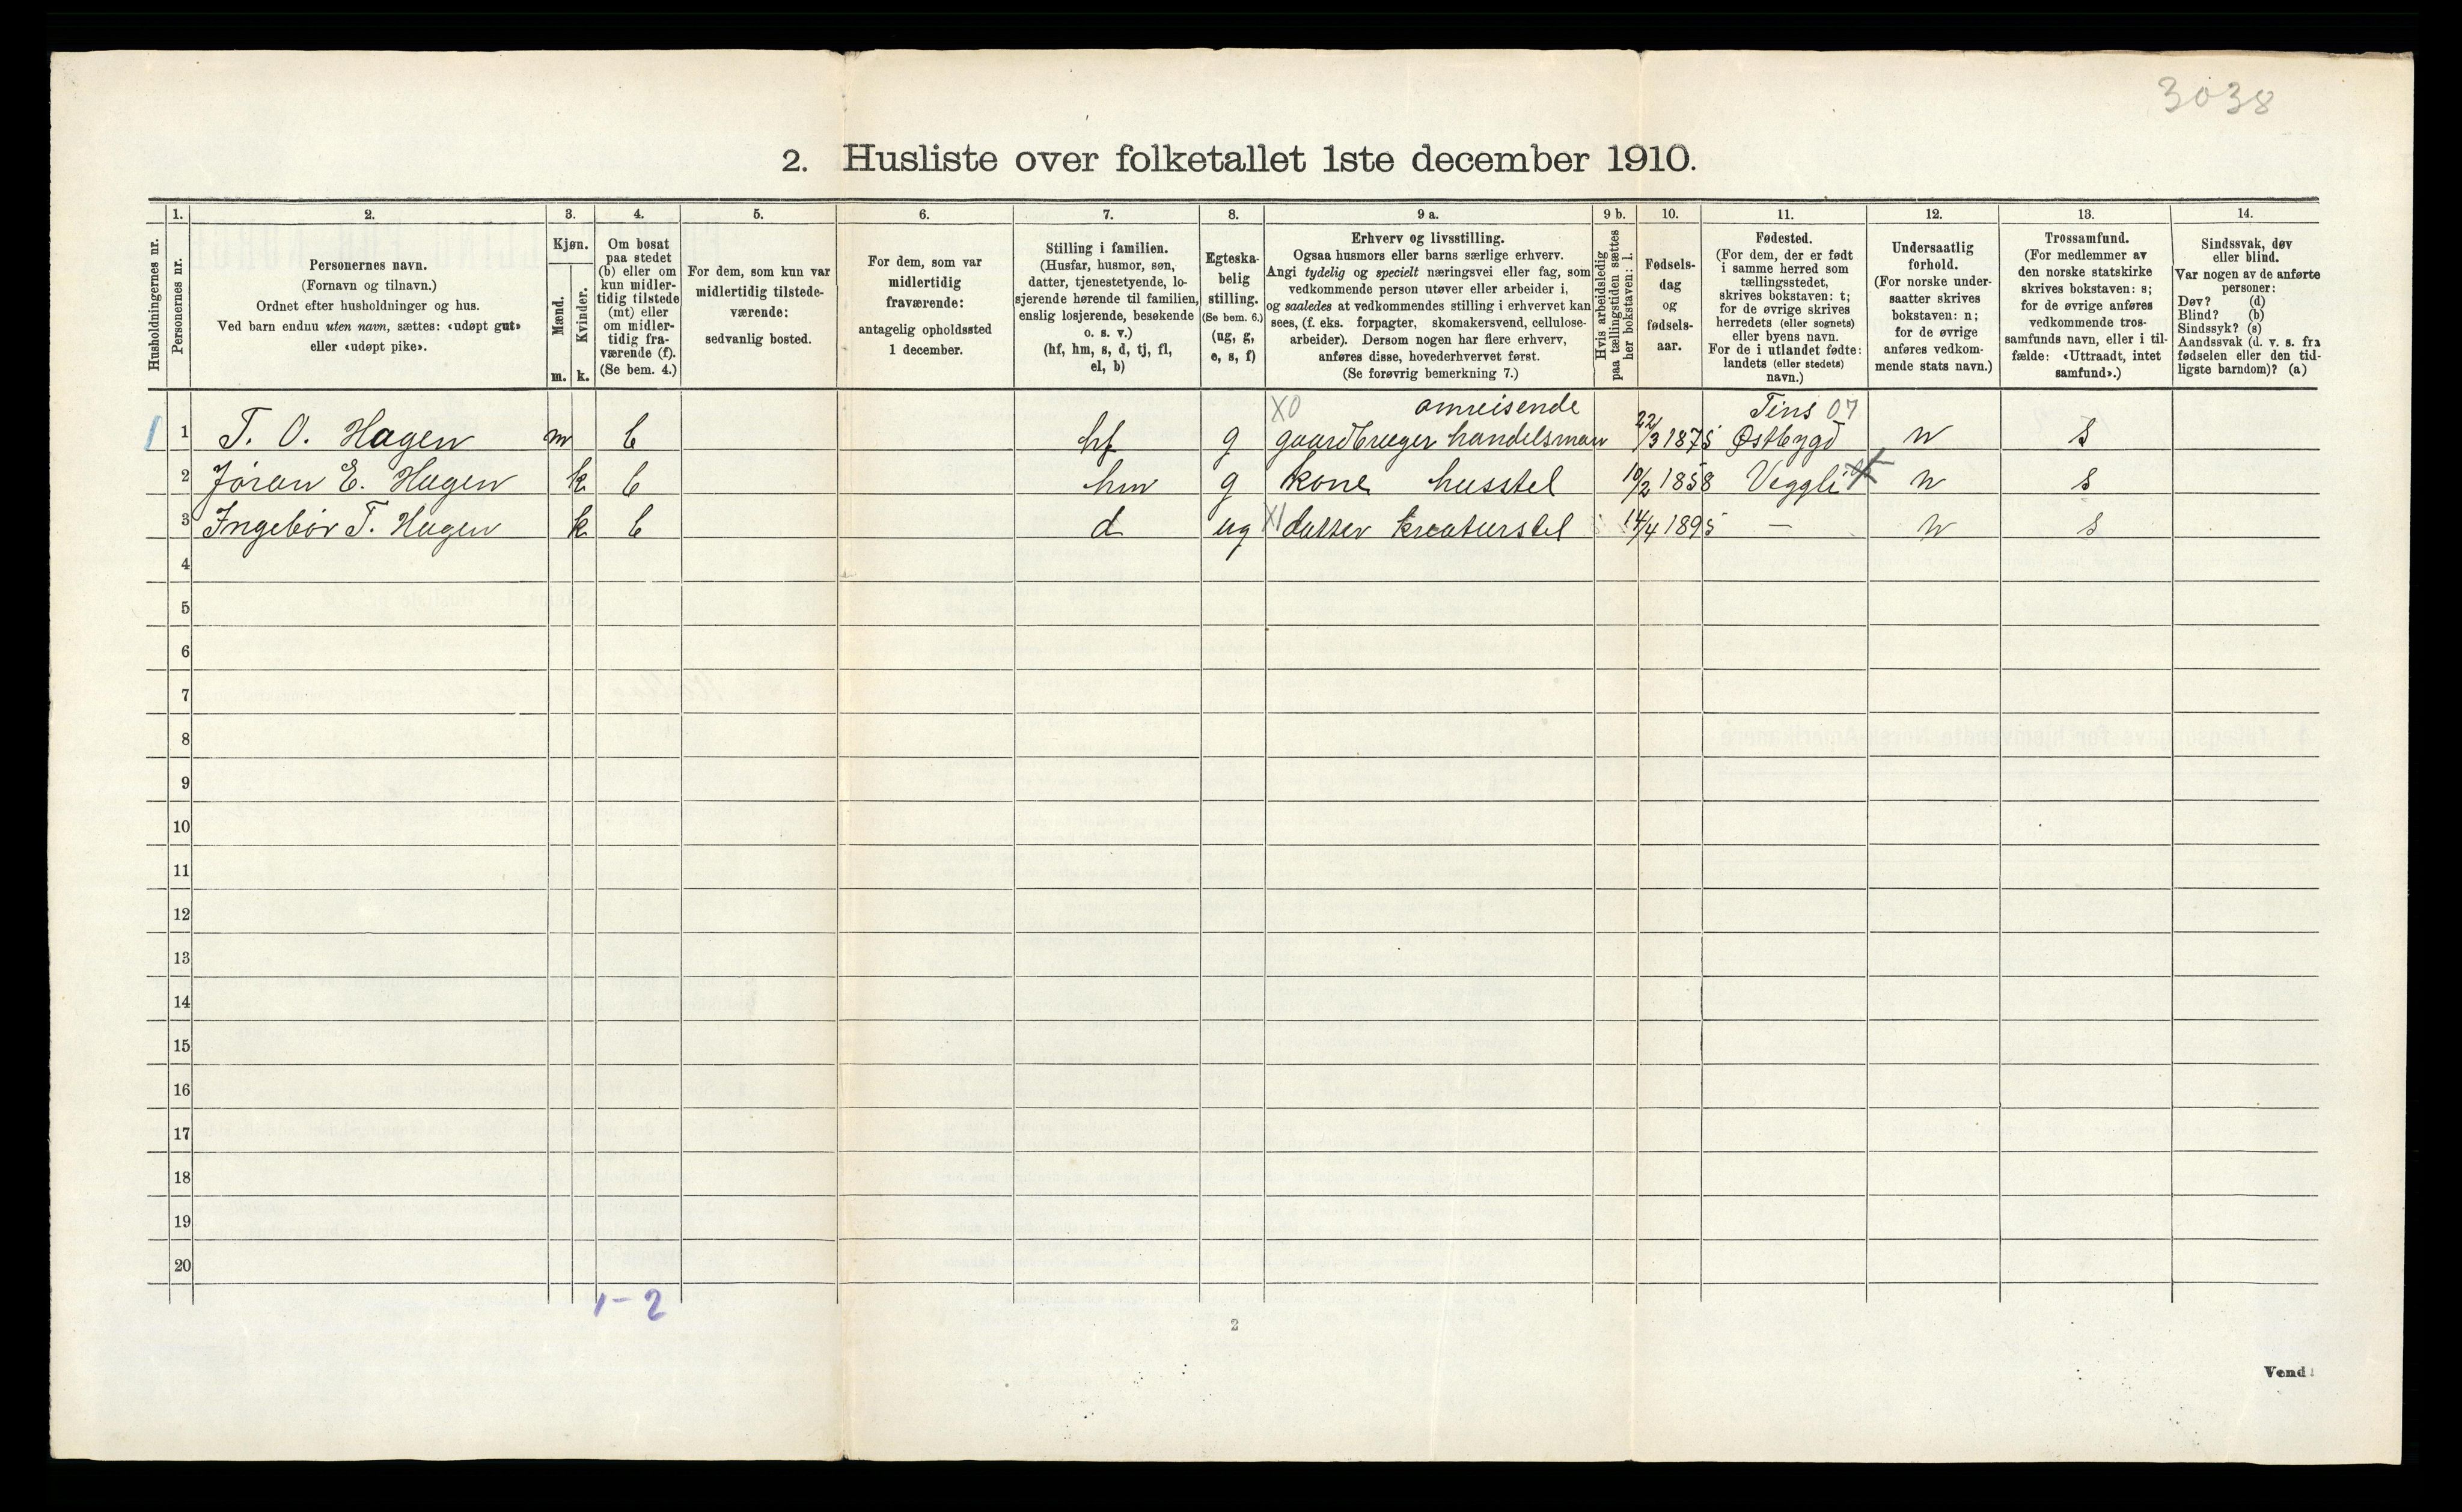 3038
2. Husliste over folketallet 1ste december 1910.
Husholdningernes nr.
1.
Personernes nr.
2.
Personernes navn.
(Fornavn og tilnavn.)
Ordnet efter husholdninger og hus.
Ved barn endnu uten navn, sættes: «udøpt gut»
eller «udøpt pike».
3.
Kjøn.
Mænd.
Kvinder.
m. k.
4.
Om bosat
paa stedet
(b) eller om
kun midler-
tidig tilstede
(mt) eller
om midler-
tidig fra-
værende (f).
(Se bem. 4.)
5.
For dem, som kun var
midlertidig tilstede-
værende:
sedvanlig bosted.
6.
For dem, som var
midlertidig
fraværende:
antagelig opholdssted
1 december.
7.
Stilling i familien.
(Husfar, husmor, søn,
datter, tjenestetyende, lo-
sjerende hørende til familien,
enslig losjerende, besøkende
o. s. v.)
(hf, hm, s, d, tj, fl,
el, b)
8.
Egteska-
belig
stilling.
(Se bem. 6.)
(ug, g,
e, s, f)
9 a.
Erhverv og livsstilling.
Ogsaa husmors eller barns særlige erhverv.
Angi tydelig og specielt næringsvei eller fag, som
vedkommende person utøver eller arbeider i,
og saaledes at vedkommendes stilling i erhvervet kan
sees, (f. eks. forpagter, skomakersvend, cellulose-
arbeider). Dersom nogen har flere erhverv,
anføres disse, hovederhvervet først.
(Se forøvrig bemerkning 7.)
9 b.
Hvis arbeidsledig
paa tællingstiden sættes
her bokstaven: l.
10.
Fødsels-
dag
og
fødsels-
aar.
11.
Fødested.
(For dem, der er født
i samme herred som
tællingsstedet,
skrives bokstaven: t;
for de øvrige skrives
herredets (eller sognets)
eller byens navn.
For de i utlandet fødte:
landets (eller stedets)
navn.)
12.
Undersaatlig
forhold.
(For norske under-
saatter skrives
bokstaven: n;
for de øvrige
anføres vedkom-
mende stats navn.)
13.
Trossamfund.
(For medlemmer av
den norske statskirke
skrives bokstaven: s;
for de øvrige anføres
vedkommende tros-
samfunds navn, eller i til-
fælde: «Uttraadt, intet
samfund».)
14.
Sindssvak, døv
eller blind.
Var nogen av de anførte
personer:
Døv? (d)
Blind? (b)
Sindssyk? (s)
Aandssvak (d. v. s. fra
fødselen eller den tid-
ligste barndom)? (a)
X0 omreisende Tins 07
1 1 T. O. Hagen m b hf g gaardbruger handelsman 22/3 1875 Østbygd n s
2 Jøran E. Hagen k b hm g kone husstel 10/2 1858 Veggli t n s
3 Ingebør T. Hagen k b d ug X1 datter kreaturstel 14/4 1895 — n s
4
5
6
7
8
9
10
11
12
13
14
15
16
17
18
19
20
1-2
2
Vend!